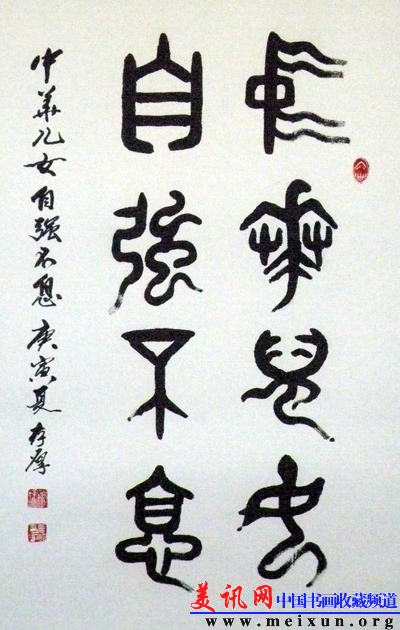 中華兒女
自強不息
中华儿女自强不息庚寅夏存厚
美讯网中国书画收藏频道
www.meixun.org